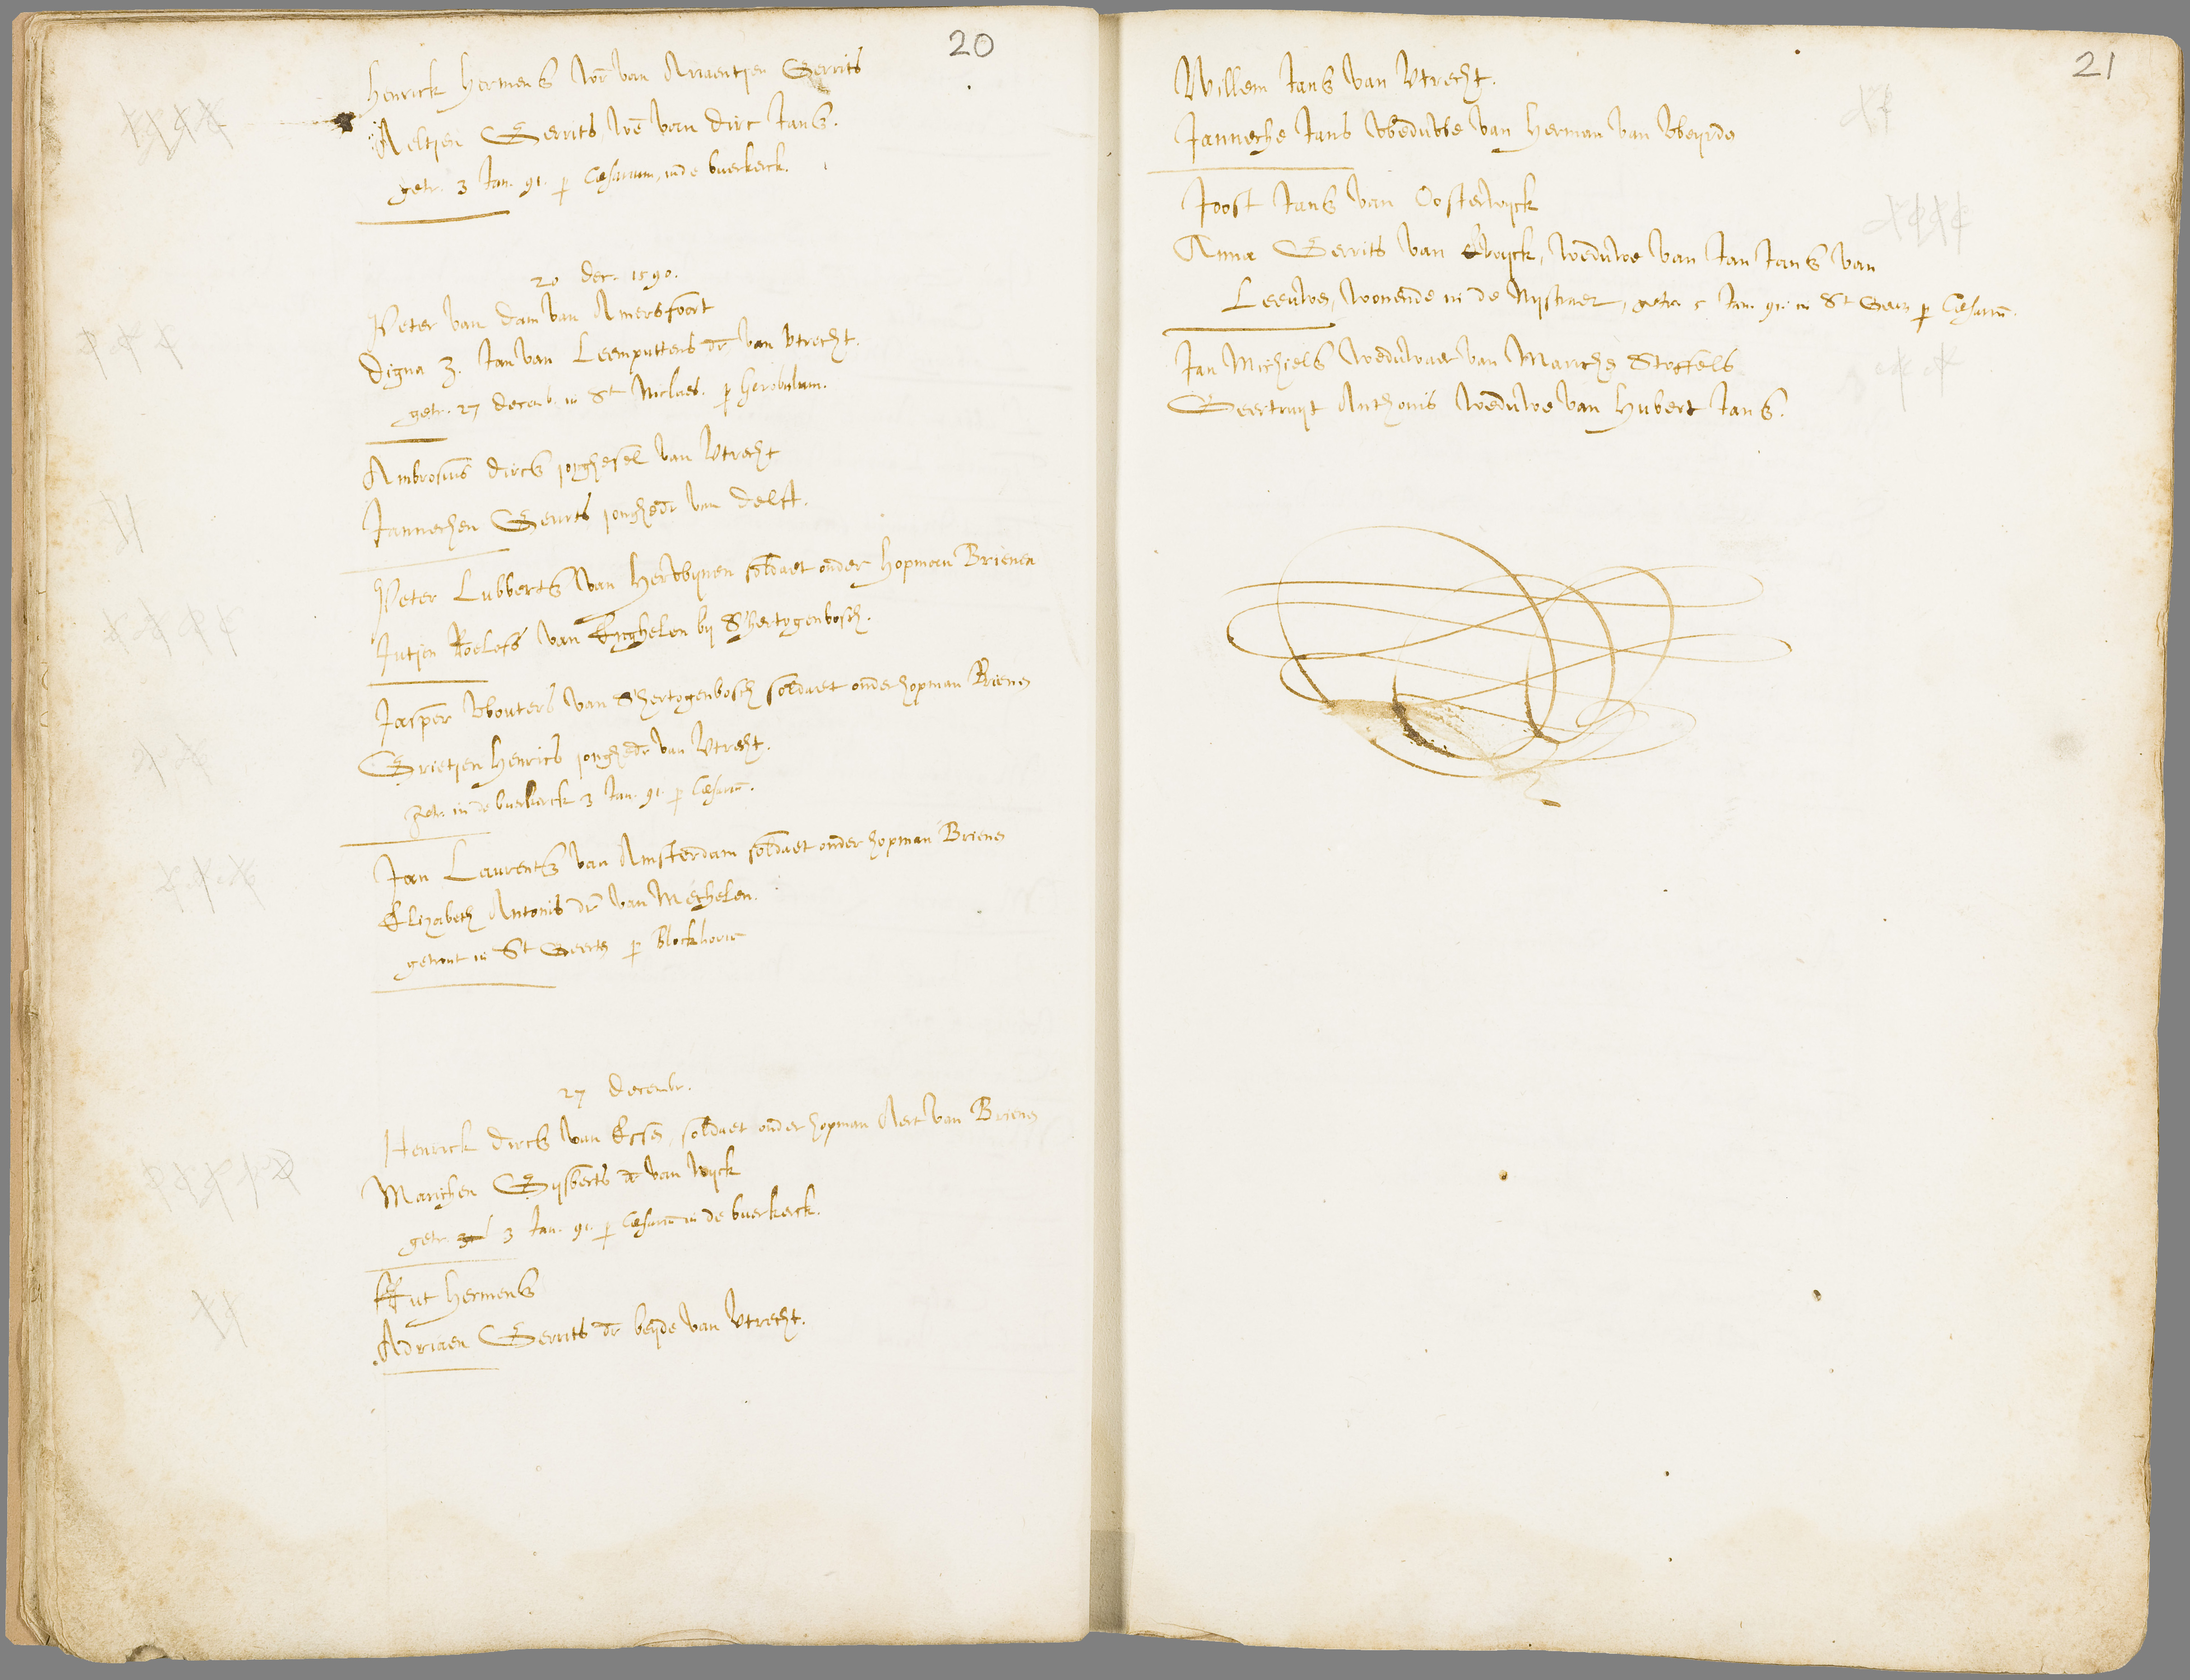 20
Henrick Hermens wr van Ariaentjen Gerrits
Aeltjen Gerrits, we van Dirc Jans.
getr. 3 Jan. 91. p Caesarium, inde buerkerck.
20 Dec. 1590.
Peter van Dam van Amersfoort
Digna Z. Jan van Leemputtens dr van Utrecht.
getr. 27 decemb. in St Niclaes. p Gerobulum.
Ambrosius Dircs jonghesel van Utrecht
Jannechen Geurts jonghedr van Delft.
Peter Lubberts van Herwijnen soldaet onder Hopman Brienen
Jutjen Roelofs van bij S'hertogenbosch.
Jasper Wouters van S'hertogenbosch soldaet onder hopman Brienen
Grietjen Henrics jonghedr van Utrecht.
getr. in de buerkerck 3 Jan. 91. p Caesariu.
Jan Laurents van Amsterdam soldaet onder hopman Brienen
Elizabeth Antonis dr van Mechelen.
getrout in St Geerten p
27 Decembr.
Henrick Dircs van Essen, soldaet onder hopman Aert van Brienen
Marichen Gijsberts dr van Wijck
getr. 3 Jan. 91. p Caesariu in de buerkerck.
Rut Hermens
Adriaen Gerrits dr beijde van Utrecht.
21
Willem Jans van Utrecht.
Janneche Jans Weduwe van Herman van Weyrde
Joost Jans van Oosterwijck
Anna Gerrits van Ewijck, weduwe van Jan Jans van
Leeuwen, wonende in de, getr. 5 Jan. 91. in St Geert p Caesariu.
Jan Michiels weduwaer van Mariche Stoffels
Geertruyt Anthonis weduwe van Hubert Jans.